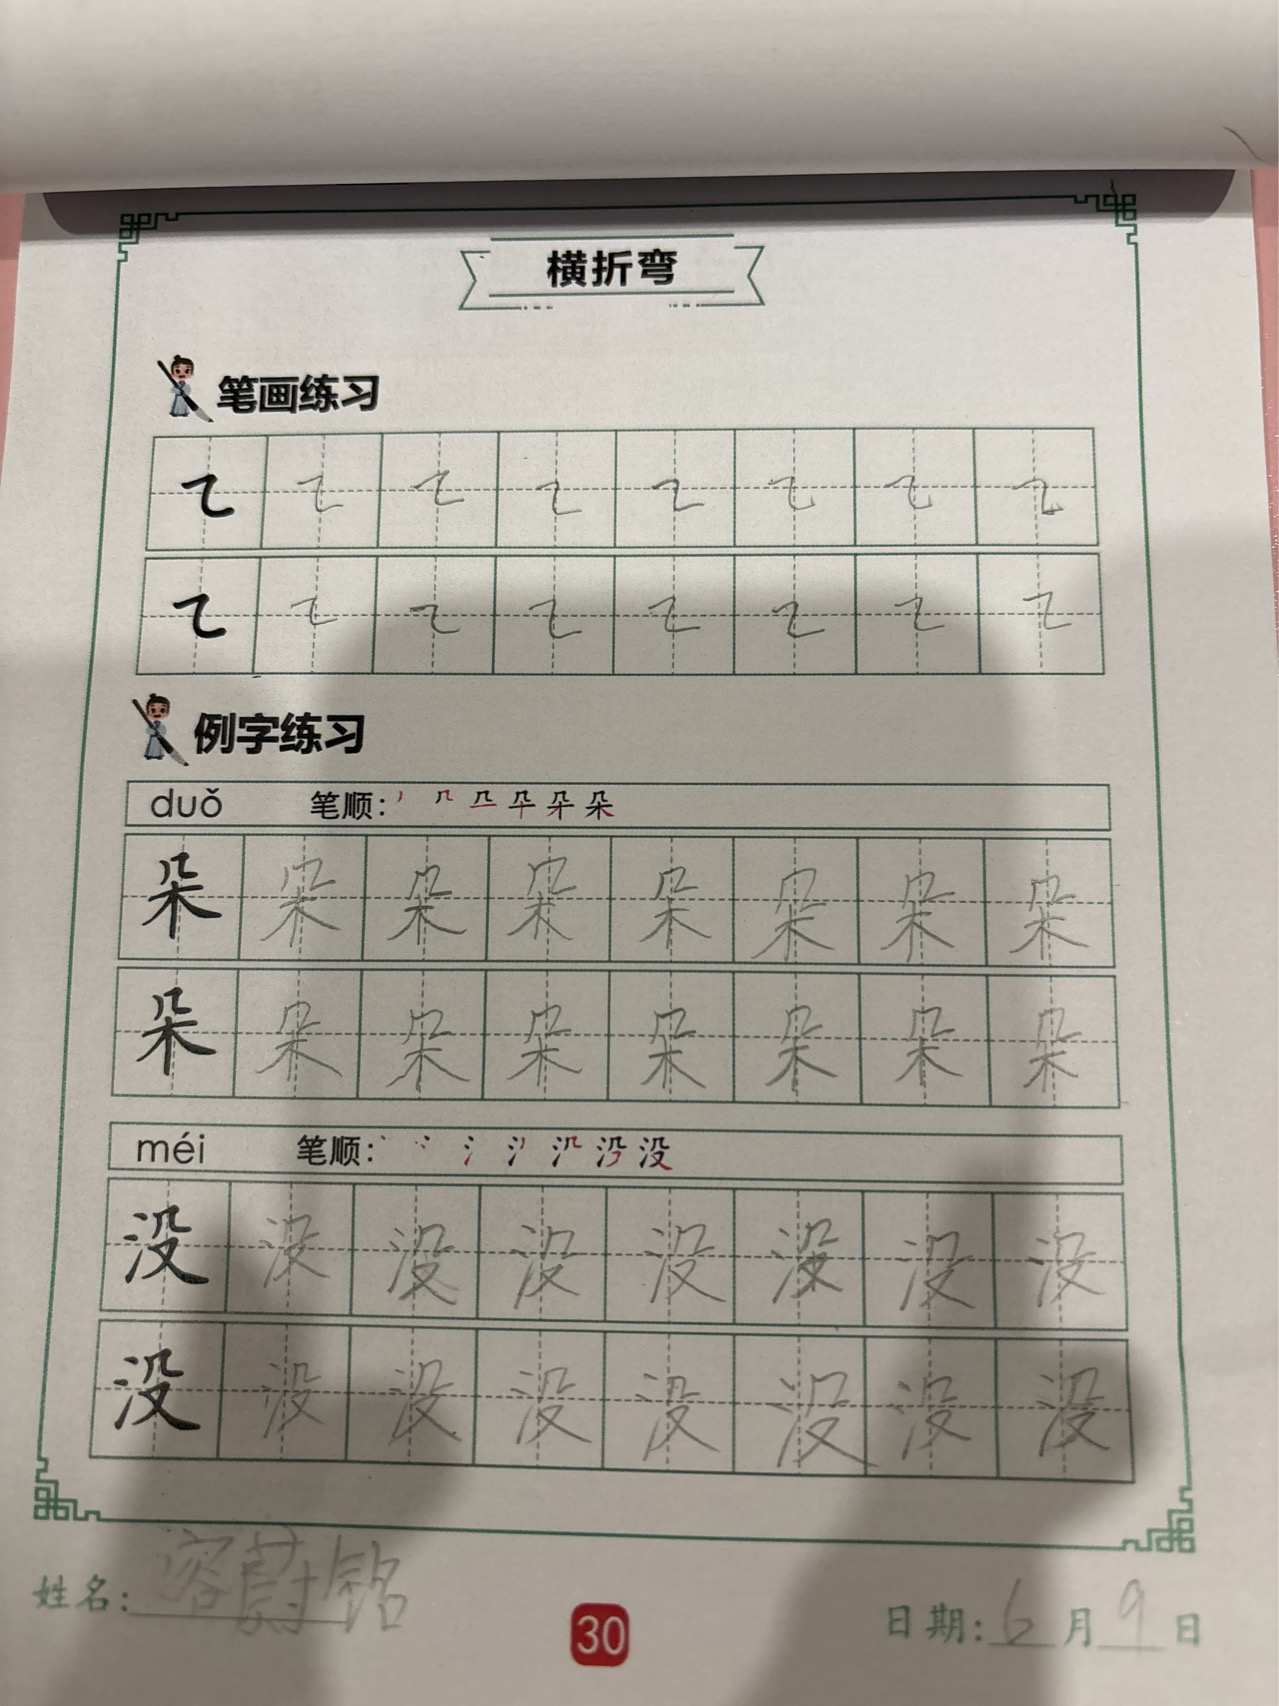 横折弯
笔画练习
㇍ ㇍ ㇍ ㇍ ㇍ ㇍ ㇍ ㇍
㇍ ㇍ ㇍ ㇍ ㇍ ㇍ ㇍ ㇍
例字练习
duǒ 笔顺:
朵 朵 朵 朵 朵 朵 朵 朵
朵 朵 朵 朵 朵 朵 朵 朵
méi 笔顺:
没 没 没 没 没 没 没 没
没 没 没 没 没 没 没 没
姓名: 容蔚铭
30
日期: 6月9日